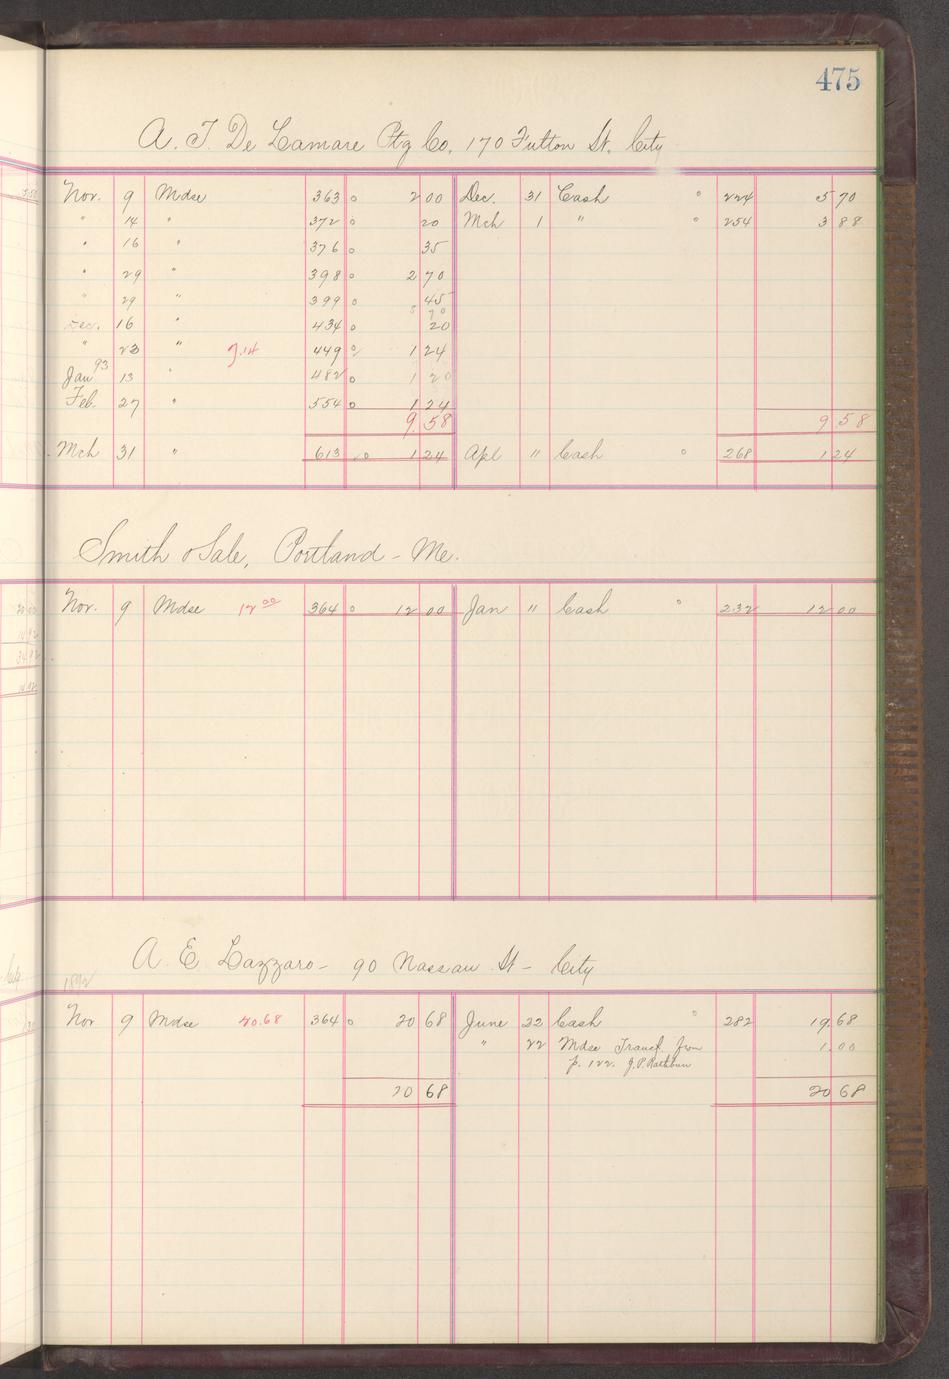 475
A. T. De Lamare Ptg Co. 170 Fulton St. City
Nov. 9 Mdse 363 0 2 00 Dec. 31 Cash " 224 5 70
" 14 " 372 0 20 Mch 1 " " 254 3 88
" 16 " 376 0 35
" 29 " 398 0 2 70
" 29 " 399 0 45
5 70
Dec. 16 " 434 0 20
" 23 " 7.14 449 0 1 24
Jan 93 13 " 482 0 1 20
Feb. 27 " 554 0 1 24
9.58 9 58
Mch 31 " 613 0 1 24 Apl " Cash " 268 1 24
Smith & Sale, Portland - Me.
Nov. 9 Mdse 12 00 364 0 12 00 Jan " Cash " 232 12 00
A. E. Lazzaro - 90 Nassau St - City
1892
Nov 9 Mdse 20.68 364 0 20 68 June 22 Cash " 282 19.68
" 22 Mdse Transf. from 1.00
p. 122. J.P. Rathbun
20 68 20 68